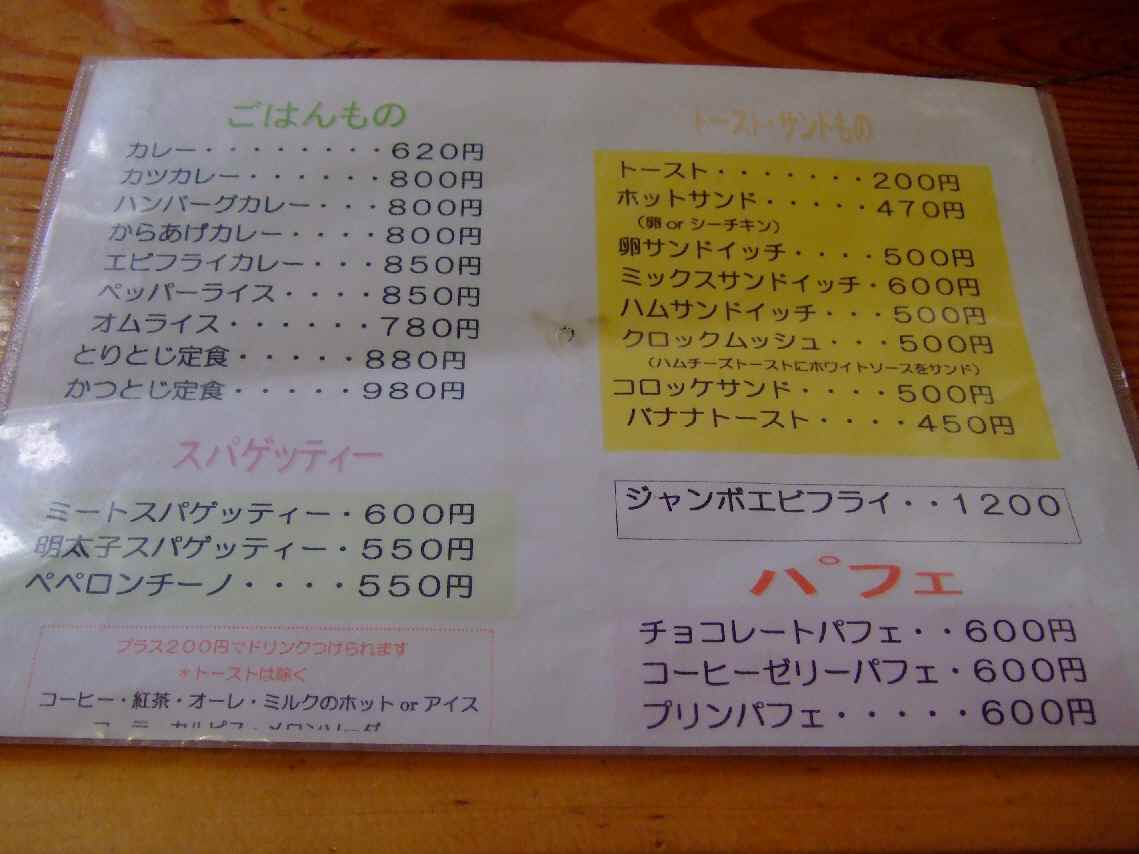 ごはんもの
カレー・・・・・・・・620円
カツカレー・・・・・・800円
ハンバーグカレー・・・800円
からあげカレー・・・・800円
エビフライカレー・・・850円
ペッパーライス・・・・850円
オムライス・・・・・・780円
とりとじ定食・・・・・880円
かつとじ定食・・・・・980円
スパゲッティー
ミートスパゲッティー・600円
明太子スパゲッティー・550円
ペペロンチーノ・・・・550円
プラス200円でドリンクつけられます
＊トーストは除く
コーヒー・紅茶・オーレ・ミルクのホット or アイス
トースト・サンドもの
トースト・・・・・・・200円
ホットサンド・・・・・470円
（卵 or シーチキン）
卵サンドイッチ・・・・500円
ミックスサンドイッチ・600円
ハムサンドイッチ・・・500円
クロックムッシュ・・・500円
（ハムチーズトーストにホワイトソースをサンド）
コロッケサンド・・・・500円
バナナトースト・・・・450円
ジャンボエビフライ・・1200
パフェ
チョコレートパフェ・・600円
コーヒーゼリーパフェ・600円
プリンパフェ・・・・・600円